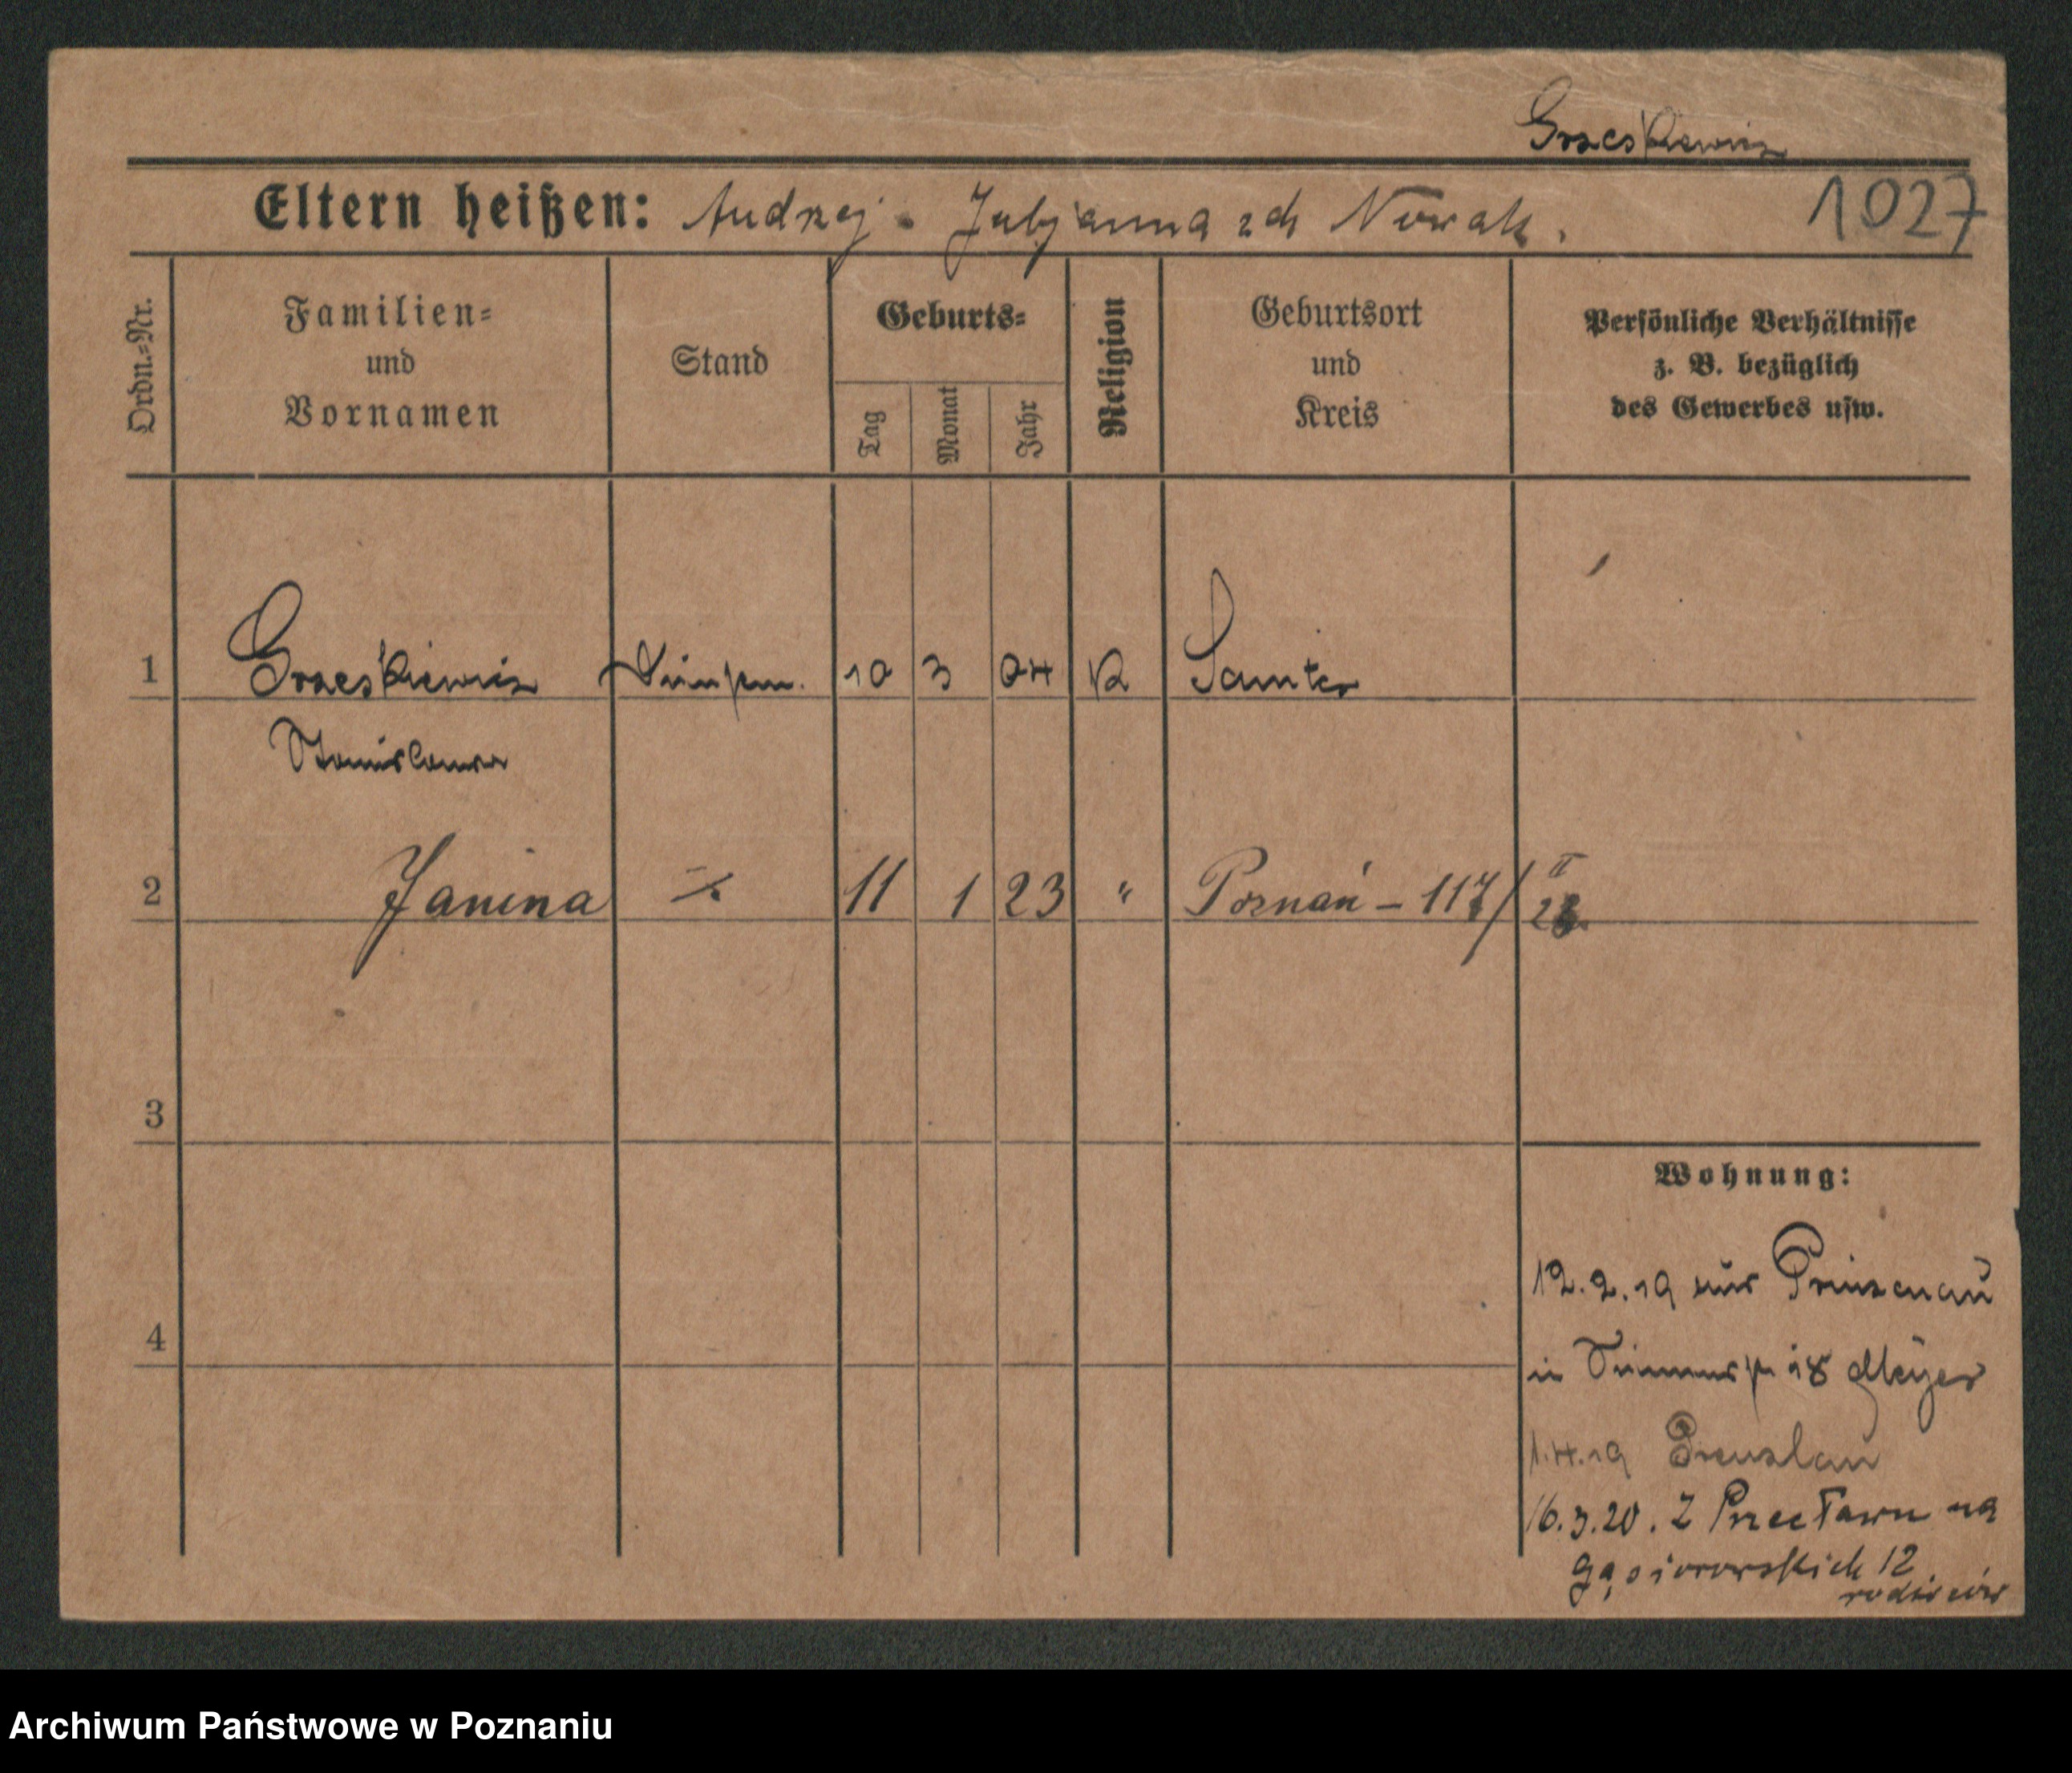 Grzeskiewicz
Eltern heißen: Andrzej - Julj'anna zd Nowak.
1027
Ordn.=Nr.
Familien=
und
Vornamen
Stand
Geburts=
Tag
Monat
Jahr
Religion
Geburtsort
und
Kreis
Persönliche Verhältnisse
z. B. bezüglich
des Gewerbes usw.
1 Grzeskiewicz 10 3 04 K Samter
Stanislawa
2 Janina 11 1 23 " Poznań - 117/ II
3
4
Wohnung:
12.2.19 aus Prinzenau
in 18 Meyer
1.4.19 Preuslau
16.3.20. Z Przecławu na
Gąsiorowskich 12
rodziców
Archiwum Państwowe w Poznaniu